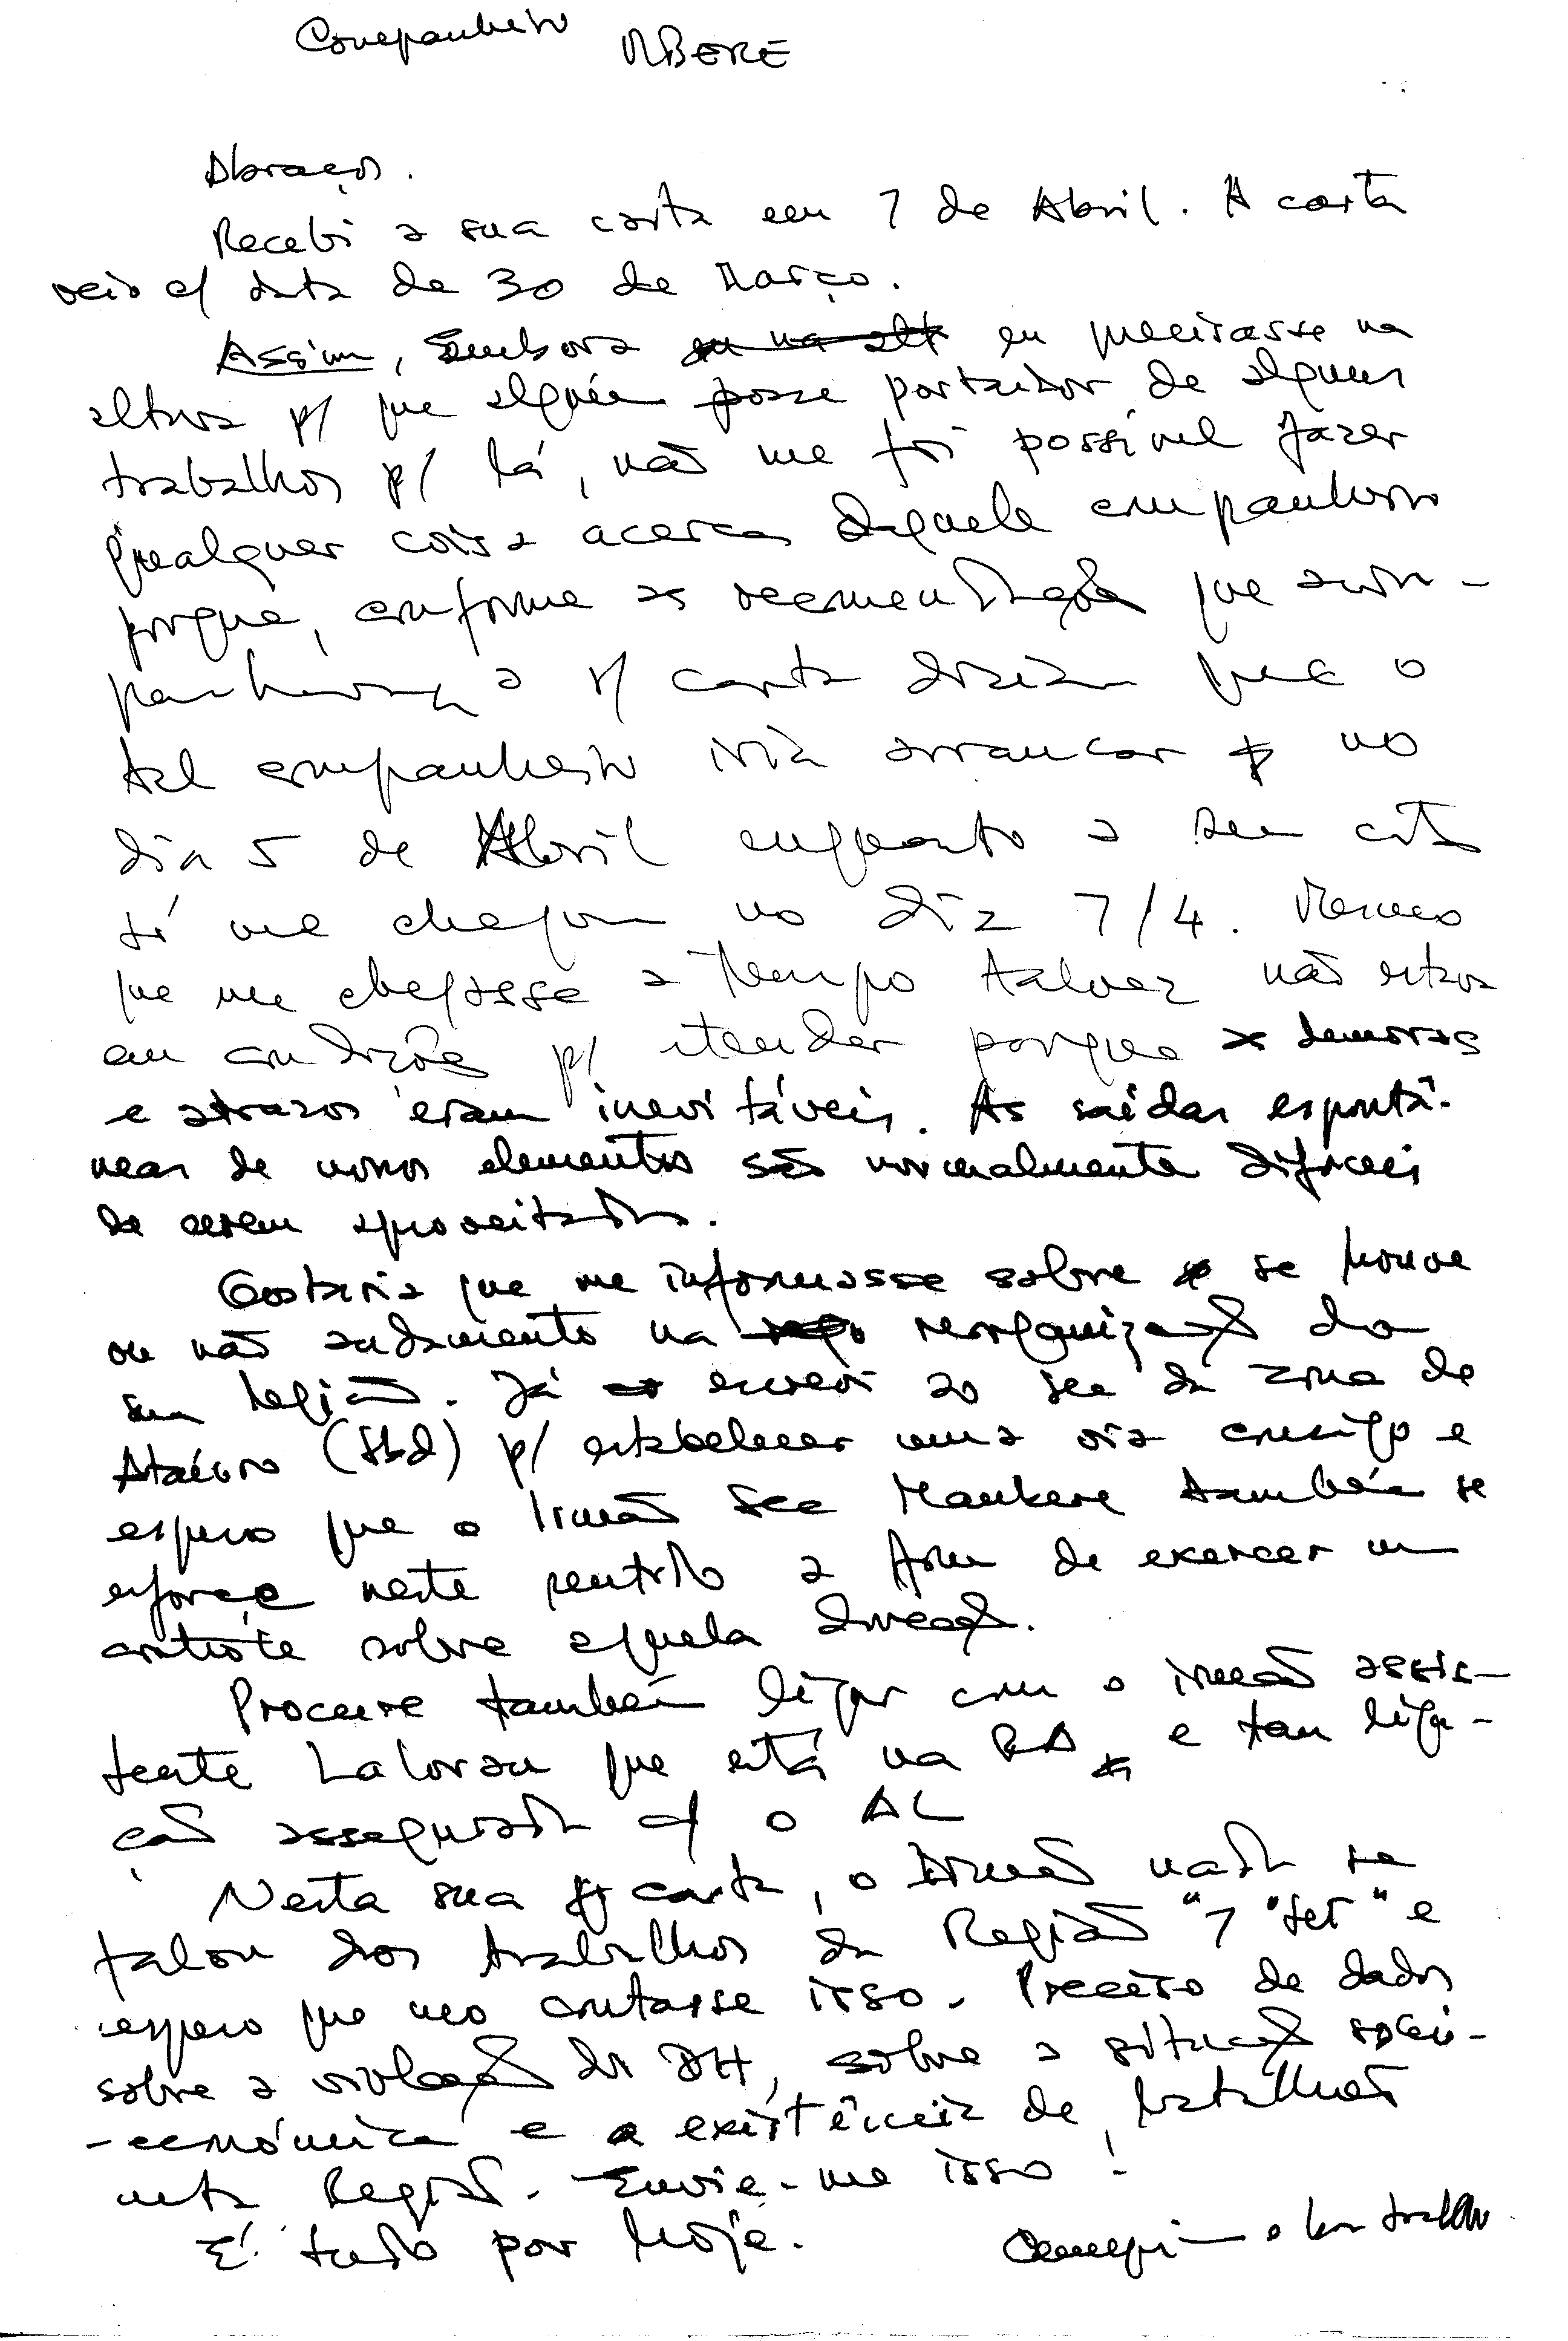 Companheiro UBERE
Abraços.
Recebi a sua carta em 7 de Abril. A carta
veio c/ data de 30 de Março.
Assim, Embora eu precisasse na
altura p/ que alguém fosse portador de alguns
trabalhos p/ lá, não me foi possível fazer
qualquer coisa acerca daquele companheiro
porque, conforme as recomendações que acom-
panhavam a v/ carta diziam que o
tal companheiro iria arrancar no
dia 5 de Abril enquanto a sua carta
só me chegou no dia 7/4. Mesmo
que me chegasse a tempo talvez não estava
em condições p/ atender porque as demoras
e atrazos eram inevitáveis. As saídas espontâ-
neas de novos elementos são normalmente difíceis
de serem aproveitados.
Gostaria que me informasse sobre se houve
ou não andamento na reorganização da
sua Região. Já escrevi ao sec da zona de
Ataúro (Sbd) p/ estabelecer uma via consigo e
espero que o Irmão Sec Maukere também se
esforce neste sentido a fim de exercer um
controle sobre aquela direcção.
Procure também ligar com o irmão assis-
tente Laloran que está na RA e tem liga-
ção assegurada c/ o AL
Nesta sua carta, o Irmão nada se
falou dos trabalhos da Região "7 "Set" e
espero que me contasse isso. Preciso de dados
sobre a violação dos DH, sobre a situação socio-
-económica e a existência de batalhões
nesta Região. Envie-me isso!
É tudo por hoje.
o bom trabalho